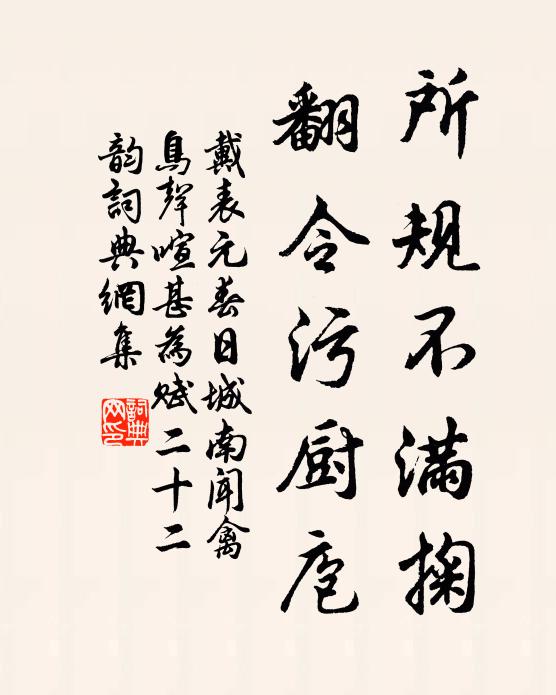 所規不滿掬
翻令污厨庖
戴表元春日城南闻禽
鳥聲喧甚為賦二十二
韵詞典網集
詞典網印